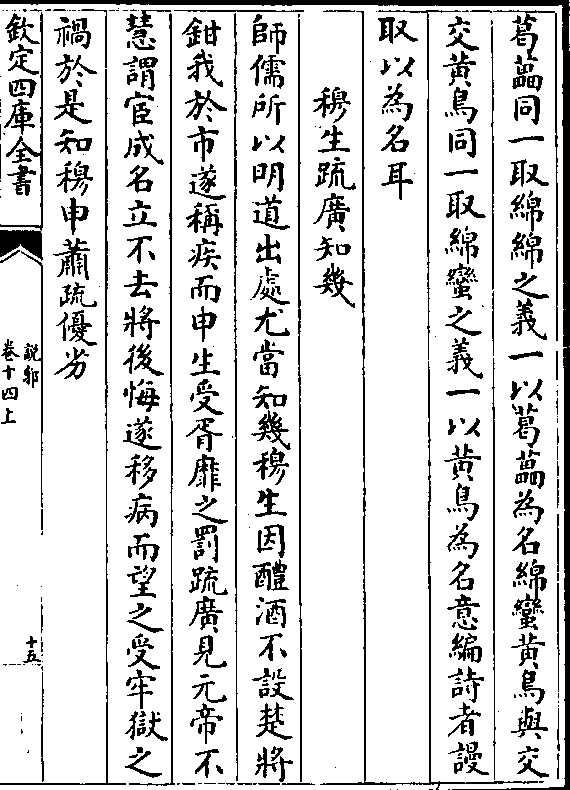 葛藟同一取綿綿之義一以葛藟為名綿蠻黄鳥與交
交黄鳥同一取綿蠻之義一以黄鳥為名意編詩者謾
取以為名耳
穆生疏廣知幾
師儒所以明道出處尤當知幾穆生因醴酒不設楚將
鉗我於市遂稱疾而申生受胥靡之罰疏廣見元帝不
慧謂宦成名立不去將後悔遂移病而望之受牢獄之
禍於是知穆申蕭疏優劣
欽定四庫全書
說郛
卷十四上
十五